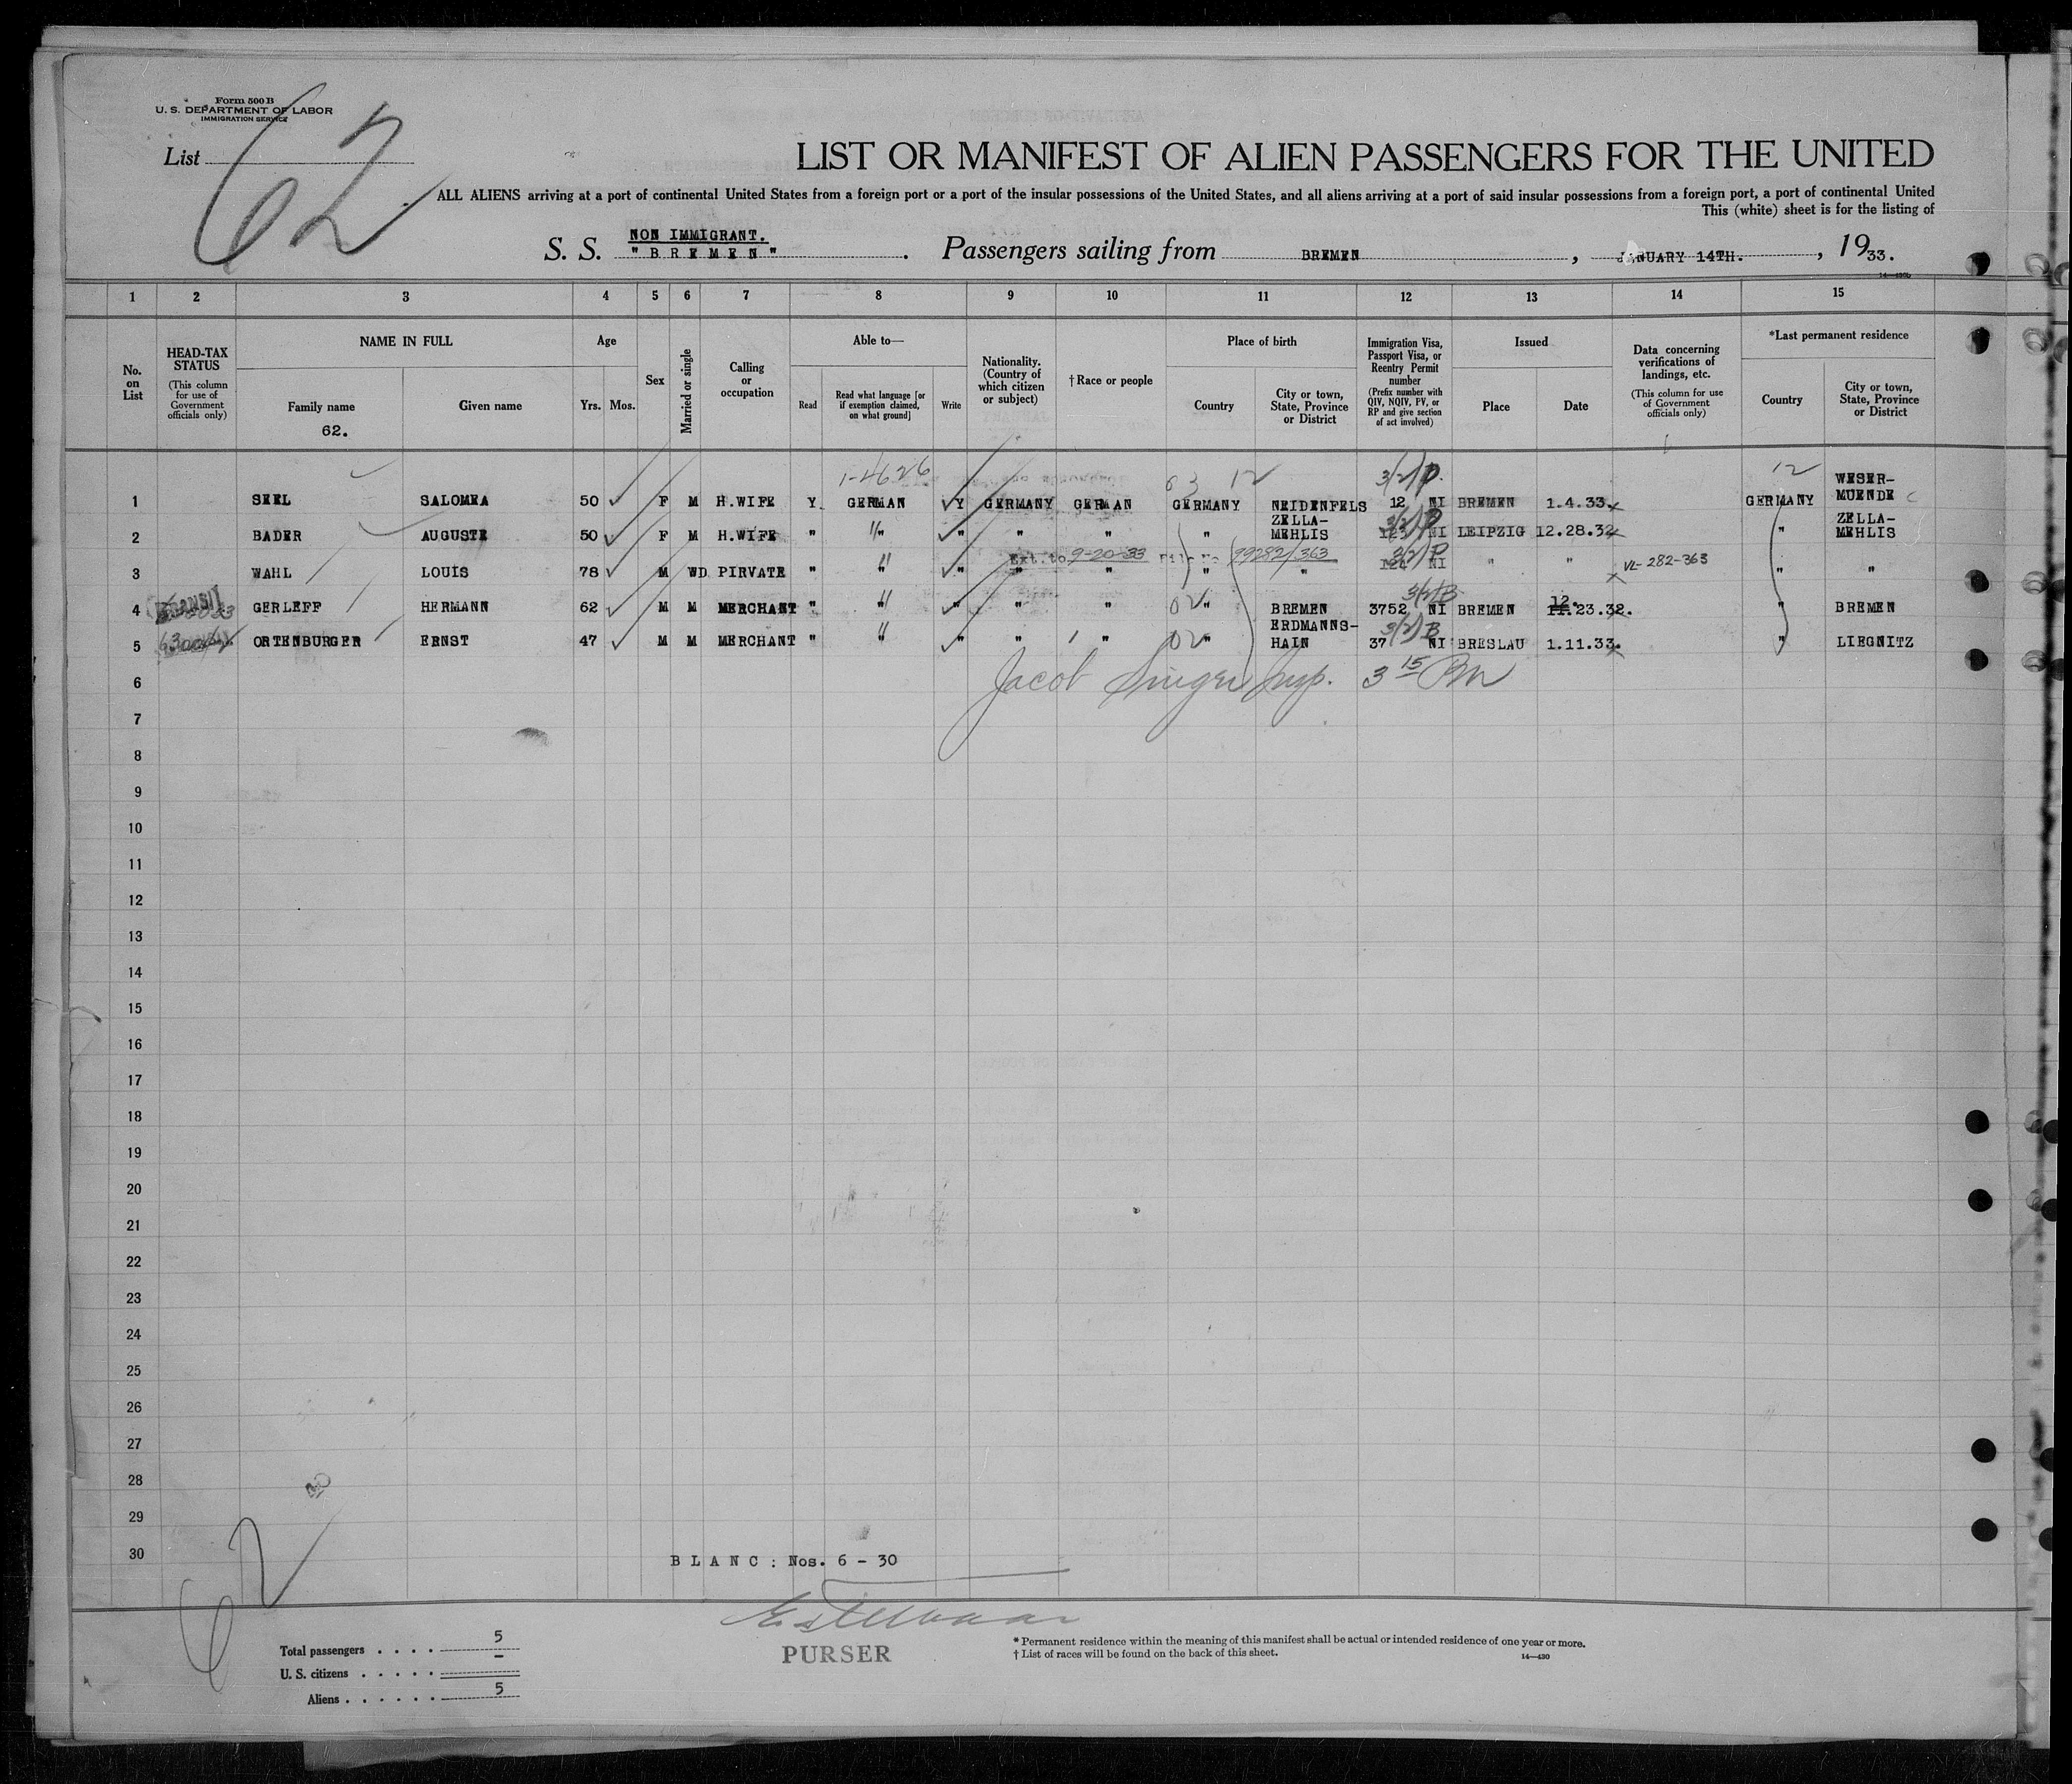 Form 500 B
U. S. DEPARTMENT OF LABOR
IMMIGRATION SERVICE
List
62
LIST OR MANIFEST OF ALIEN PASSENGERS FOR THE UNITED
ALL ALIENS arriving at a port of continental United States from a foreign port or a port of the insular possessions of the United States, and all aliens arriving at a port of said insular possessions from a foreign port, a port of continental United
This (white) sheet is for the listing of
NON IMMIGRANT.
S. S. "BREMEN". Passengers sailing from BREMEN, JANUARY 14TH., 1933.
1 2 3 4 5 6 7 8 9 10 11 12 13 14 15
No. on List
HEAD-TAX STATUS (This column for use of Government officials only)
NAME IN FULL
Family name Given name
62.
Age
Yrs. Mos.
Sex
Married or single
Calling or occupation
Able to—
Read
Read what language [or if exemption claimed, on what ground]
Write
Nationality. (Country of which citizen or subject)
†Race or people
Place of birth
Country
City or town, State, Province or District
Immigration Visa, Passport Visa, or Reentry Permit number (Prefix number with QIV, NQIV, PV, or RP and give section of act involved)
Issued
Place Date
Data concerning verifications of landings, etc. (This column for use of Government officials only)
*Last permanent residence
Country
City or town, State, Province or District
1-4626 03 12 3(2)P. 12
1 SEEL SALOMEA 50 F M H.WIFE Y. GERMAN Y GERMANY GERMAN GERMANY NEIDENFELS 12 NI BREMEN 1.4.33. GERMANY WESER-MUENDE
2 BADER AUGUSTE 50 F M H.WIFE " " " " " " ZELLA-MEHLIS 3(2)P 123 NI LEIPZIG 12.28.32 " ZELLA-MEHLIS
Ext. to 9-20-33 File No 99282/363
3 WAHL LOUIS 78 M WD PIRVATE " " " " " " " 3(2)P 124 NI " " VL-282-363 " "
4 TRANSIT GERLEFF HERMANN 62 M M MERCHANT " " " " " 02 " BREMEN 3(2)B 3752 NI BREMEN 12. 11.23.32. " BREMEN
5 ORTENBURGER ERNST 47 M M MERCHANT " " " " " 02 " ERDMANNS-HAIN 3(2)B 37 NI BRESLAU 1.11.33. " LIEGNITZ
6 Jacob Singer Insp. 3 15 PM
7
8
9
10
11
12
13
14
15
16
17
18
19
20
21
22
23
24
25
26
27
28
29
30
BLANC: Nos. 6 - 30
62
PURSER
Total passengers . . . . 5
U. S. citizens . . . . . –
Aliens . . . . . . 5
* Permanent residence within the meaning of this manifest shall be actual or intended residence of one year or more.
† List of races will be found on the back of this sheet.
14—430